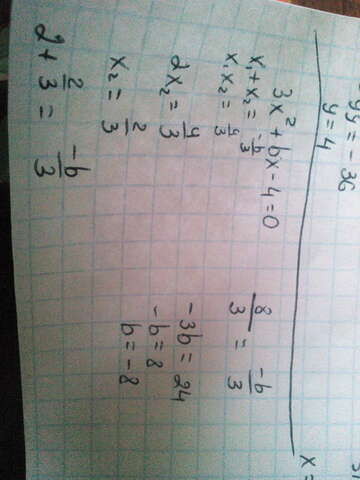 -9y = -36
y = 4
x =
3x² + bx - 4 = 0
x₁ + x₂ = -b/3
x₁x₂ = 4/3
2x₂ = 4/3
x₂ = 2/3
2 + 2/3 = -b/3
8/3 = -b/3
-3b = 24
-b = 8
b = -8